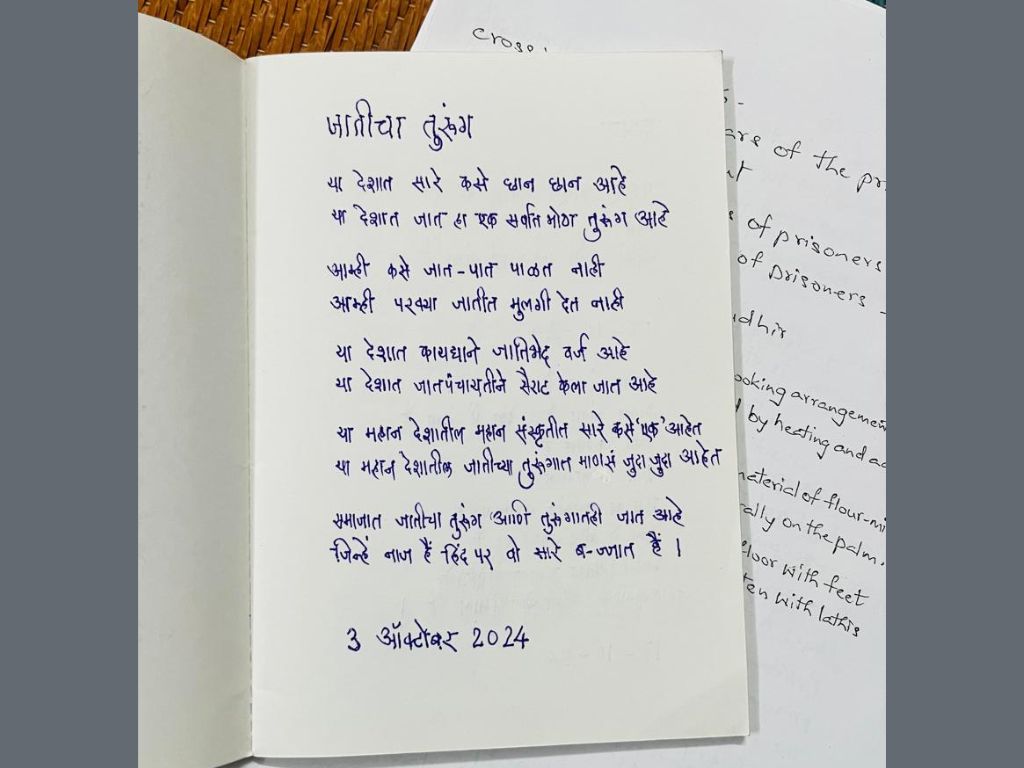 जातीचा तुरूंग
या देशात सारे कसे छान छान आहे
या देशात जात हा एक सर्वात मोठा तुरूंग आहे
आम्ही कसे जात-पात पाळत नाही
आम्ही परक्या जातीत मुलगी देत नाही
या देशात कायद्याने जातिभेद वर्ज आहे
या देशात जातपंचायतीने सैराट केला जात आहे
या महान देशातील महान संस्कृतीत सारे कसे 'एक' आहेत
या महान देशातील जातीच्या तुरूंगात माणसं जुदा जुदा आहेत
समाजात जातीचा तुरूंग आणि तुरूंगातही जात आहे
जिन्हें नाज हैं हिंद पर वो सारे ब-ज्जात हैं ।
3 ऑक्टोबर 2024
of the
of prisoners
of prisoners -
oking arrangemen
by heating and
material of flour-mi
ally on the palm.
floor with feet
ten with lathis